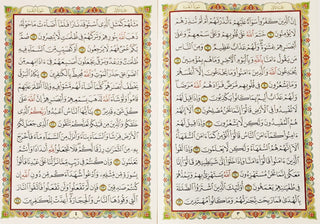 إِنَّ الَّذِينَ كَفَرُوا سَوَاءٌ عَلَيْهِمْ ءَأَنذَرْتَهُمْ أَمْ لَمْ تُنذِرْهُمْ
لَا يُؤْمِنُونَ ٦ خَتَمَ اللَّهُ عَلَىٰ قُلُوبِهِمْ وَعَلَىٰ سَمْعِهِمْ وَعَلَىٰ
أَبْصَارِهِمْ غِشَاوَةٌ وَلَهُمْ عَذَابٌ عَظِيمٌ ٧ وَمِنَ النَّاسِ مَن يَقُولُ
ءَامَنَّا بِاللَّهِ وَبِالْيَوْمِ الْآخِرِ وَمَا هُم بِمُؤْمِنِينَ ٨ يُخَادِعُونَ
اللَّهَ وَالَّذِينَ ءَامَنُوا وَمَا يَخْدَعُونَ إِلَّا أَنفُسَهُمْ
وَمَا يَشْعُرُونَ ٩ فِي قُلُوبِهِم مَّرَضٌ فَزَادَهُمُ اللَّهُ مَرَضًا
وَلَهُمْ عَذَابٌ أَلِيمٌ بِمَا كَانُوا يَكْذِبُونَ ١٠ وَإِذَا قِيلَ لَهُمْ
لَا تُفْسِدُوا فِي الْأَرْضِ قَالُوا إِنَّمَا نَحْنُ مُصْلِحُونَ ١١
أَلَا إِنَّهُمْ هُمُ الْمُفْسِدُونَ وَلَٰكِن لَّا يَشْعُرُونَ ١٢ وَإِذَا قِيلَ لَهُمْ
ءَامِنُوا كَمَا ءَامَنَ النَّاسُ قَالُوا أَنُؤْمِنُ كَمَا ءَامَنَ السُّفَهَاءُ
أَلَا إِنَّهُمْ هُمُ السُّفَهَاءُ وَلَٰكِن لَّا يَعْلَمُونَ ١٣ وَإِذَا لَقُوا الَّذِينَ
ءَامَنُوا قَالُوا ءَامَنَّا وَإِذَا خَلَوْا إِلَىٰ شَيَاطِينِهِمْ قَالُوا إِنَّا
مَعَكُمْ إِنَّمَا نَحْنُ مُسْتَهْزِءُونَ ١٤ اللَّهُ يَسْتَهْزِئُ بِهِمْ وَيَمُدُّهُمْ
فِي طُغْيَانِهِمْ يَعْمَهُونَ ١٥ أُولَٰئِكَ الَّذِينَ اشْتَرَوُا الضَّلَالَةَ
بِالْهُدَىٰ فَمَا رَبِحَت تِّجَارَتُهُمْ وَمَا كَانُوا مُهْتَدِينَ ١٦
مَثَلُهُمْ كَمَثَلِ الَّذِي اسْتَوْقَدَ نَارًا فَلَمَّا أَضَاءَتْ مَا حَوْلَهُ
ذَهَبَ اللَّهُ بِنُورِهِمْ وَتَرَكَهُمْ فِي ظُلُمَاتٍ لَّا يُبْصِرُونَ ١٧ صُمٌّ
بُكْمٌ عُمْيٌ فَهُمْ لَا يَرْجِعُونَ ١٨ أَوْ كَصَيِّبٍ مِّنَ السَّمَاءِ فِيهِ
ظُلُمَاتٌ وَرَعْدٌ وَبَرْقٌ يَجْعَلُونَ أَصَابِعَهُمْ فِي ءَاذَانِهِم مِّنَ
الصَّوَاعِقِ حَذَرَ الْمَوْتِ وَاللَّهُ مُحِيطٌ بِالْكَافِرِينَ ١٩ يَكَادُ الْبَرْقُ
يَخْطَفُ أَبْصَارَهُمْ كُلَّمَا أَضَاءَ لَهُم مَّشَوْا فِيهِ وَإِذَا أَظْلَمَ عَلَيْهِمْ
قَامُوا وَلَوْ شَاءَ اللَّهُ لَذَهَبَ بِسَمْعِهِمْ وَأَبْصَارِهِمْ إِنَّ اللَّهَ عَلَىٰ
كُلِّ شَيْءٍ قَدِيرٌ ٢٠ يَا أَيُّهَا النَّاسُ اعْبُدُوا رَبَّكُمُ الَّذِي خَلَقَكُمْ
وَالَّذِينَ مِن قَبْلِكُمْ لَعَلَّكُمْ تَتَّقُونَ ٢١ الَّذِي جَعَلَ لَكُمُ
الْأَرْضَ فِرَاشًا وَالسَّمَاءَ بِنَاءً وَأَنزَلَ مِنَ السَّمَاءِ مَاءً فَأَخْرَجَ
بِهِ مِنَ الثَّمَرَاتِ رِزْقًا لَّكُمْ فَلَا تَجْعَلُوا لِلَّهِ أَندَادًا وَأَنتُمْ
تَعْلَمُونَ ٢٢ وَإِن كُنتُمْ فِي رَيْبٍ مِّمَّا نَزَّلْنَا عَلَىٰ عَبْدِنَا فَأْتُوا
بِسُورَةٍ مِّن مِّثْلِهِ وَادْعُوا شُهَدَاءَكُم مِّن دُونِ اللَّهِ إِن
كُنتُمْ صَادِقِينَ ٢٣ فَإِن لَّمْ تَفْعَلُوا وَلَن تَفْعَلُوا فَاتَّقُوا النَّارَ
الَّتِي وَقُودُهَا النَّاسُ وَالْحِجَارَةُ أُعِدَّتْ لِلْكَافِرِينَ ٢٤
٤